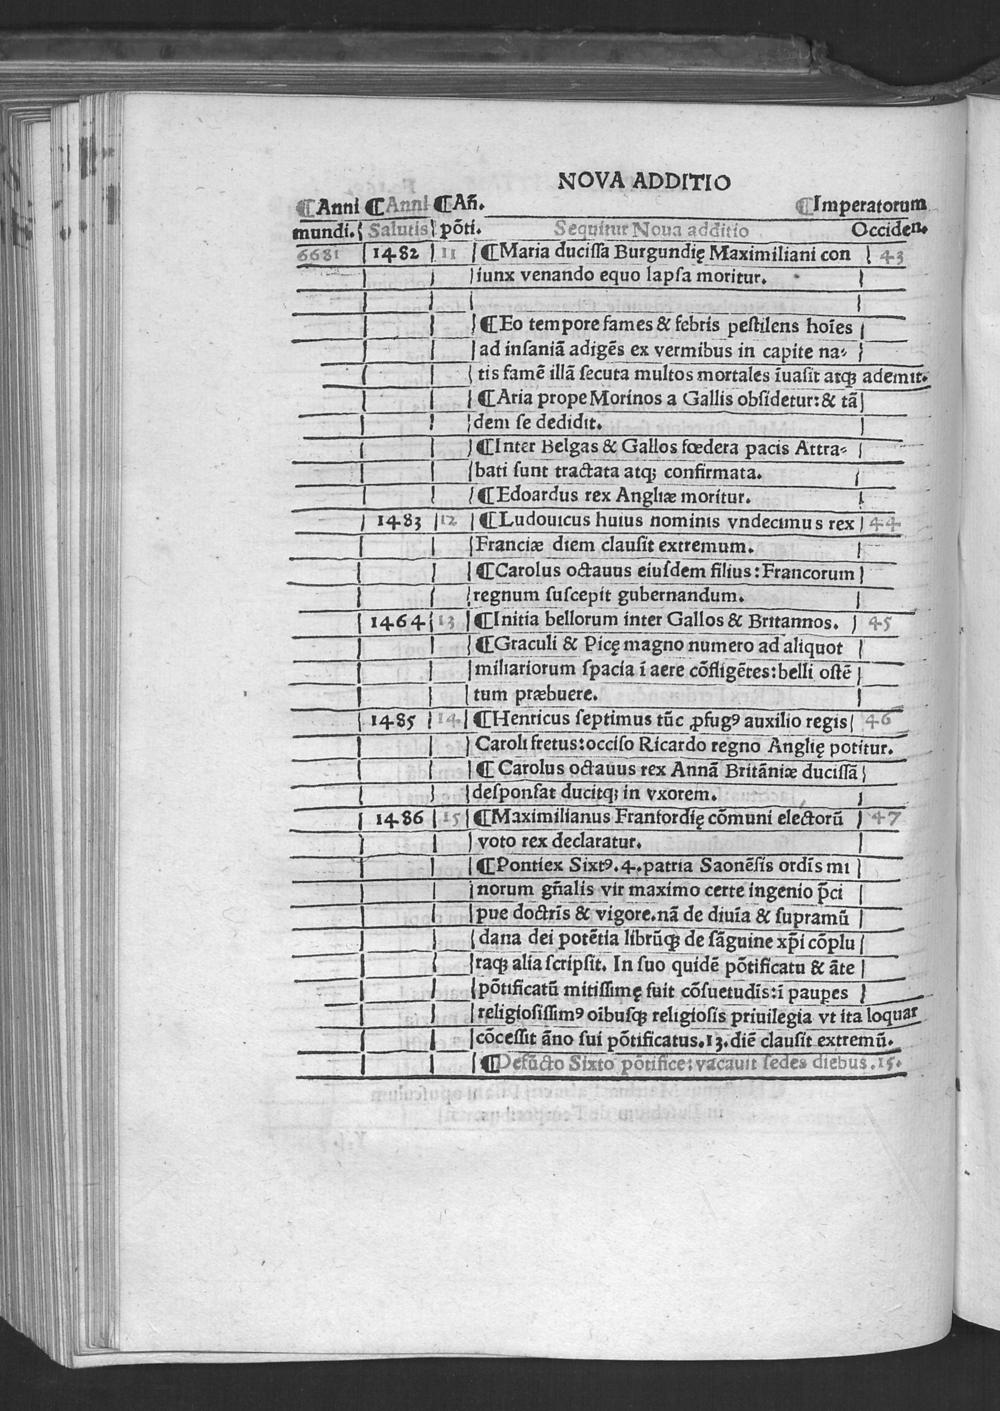 NOVA ADDITIO
¶Anni ¶Anni ¶Añ. ¶Imperatorum
mundi. Salutis põti. Sequitur Noua additio Occiden.
6681 1482 11 ¶Maria ducissa Burgundię Maximiliani con 43
iunx venando equo lapsa moritur.
¶Eo tempore fames & febris pestilens hoĩes
ad insaniã adigẽs ex vermibus in capite na-
tis famẽ illã secuta multos mortales ĩuasit atqꝫ ademit.
¶Aria prope Morinos a Gallis obsidetur: & tã
dem se dedidit.
¶Inter Belgas & Gallos fœdera pacis Attra-
bati sunt tractata atqꝫ confirmata.
¶Edoardus rex Angliæ moritur.
1483 12 ¶Ludouicus huius nominis vndecimus rex 44
Franciæ diem clausit extremum.
¶Carolus octauus eiusdem filius: Francorum
regnum suscepit gubernandum.
1464 13 ¶Initia bellorum inter Gallos & Britannos. 45
¶Graculi & Picę magno numero ad aliquot
miliariorum spacia ĩ aere cõfligẽtes: belli ostẽ
tum præbuere.
1485 14 ¶Henricus septimus tũc ꝓfugꝰ auxilio regis 46
Caroli fretus: occiso Ricardo regno Anglię potitur.
¶ Carolus octauus rex Annã Britãniæ ducissã
desponsat ducitqꝫ in vxorem.
1486 15 ¶Maximilianus Franfordię cõmuni electorũ 47
voto rex declaratur.
¶Pontiex Sixtꝰ.4.patria Saonẽsis ordĩs mi
norum gñalis vir maximo certe ingenio p̃ci
pue doctrĩs & vigore.nã de diuĩa & supramũ
dana dei potẽtia librũqꝫ de sãguine xp̃i cõplu
raqꝫ alia scripsit. In suo quidẽ põtificatu & ãte
põtificatũ mitissimę fuit cõsuetudĩs: ĩ paupes
religiosissimꝰ oibusqꝫ religiosis priuilegia vt ita loquar
cõcessit ãno sui põtificatus.13.diẽ clausit extremũ.
¶Defũcto Sixto põtifice: vacauit sedes diebus.15.